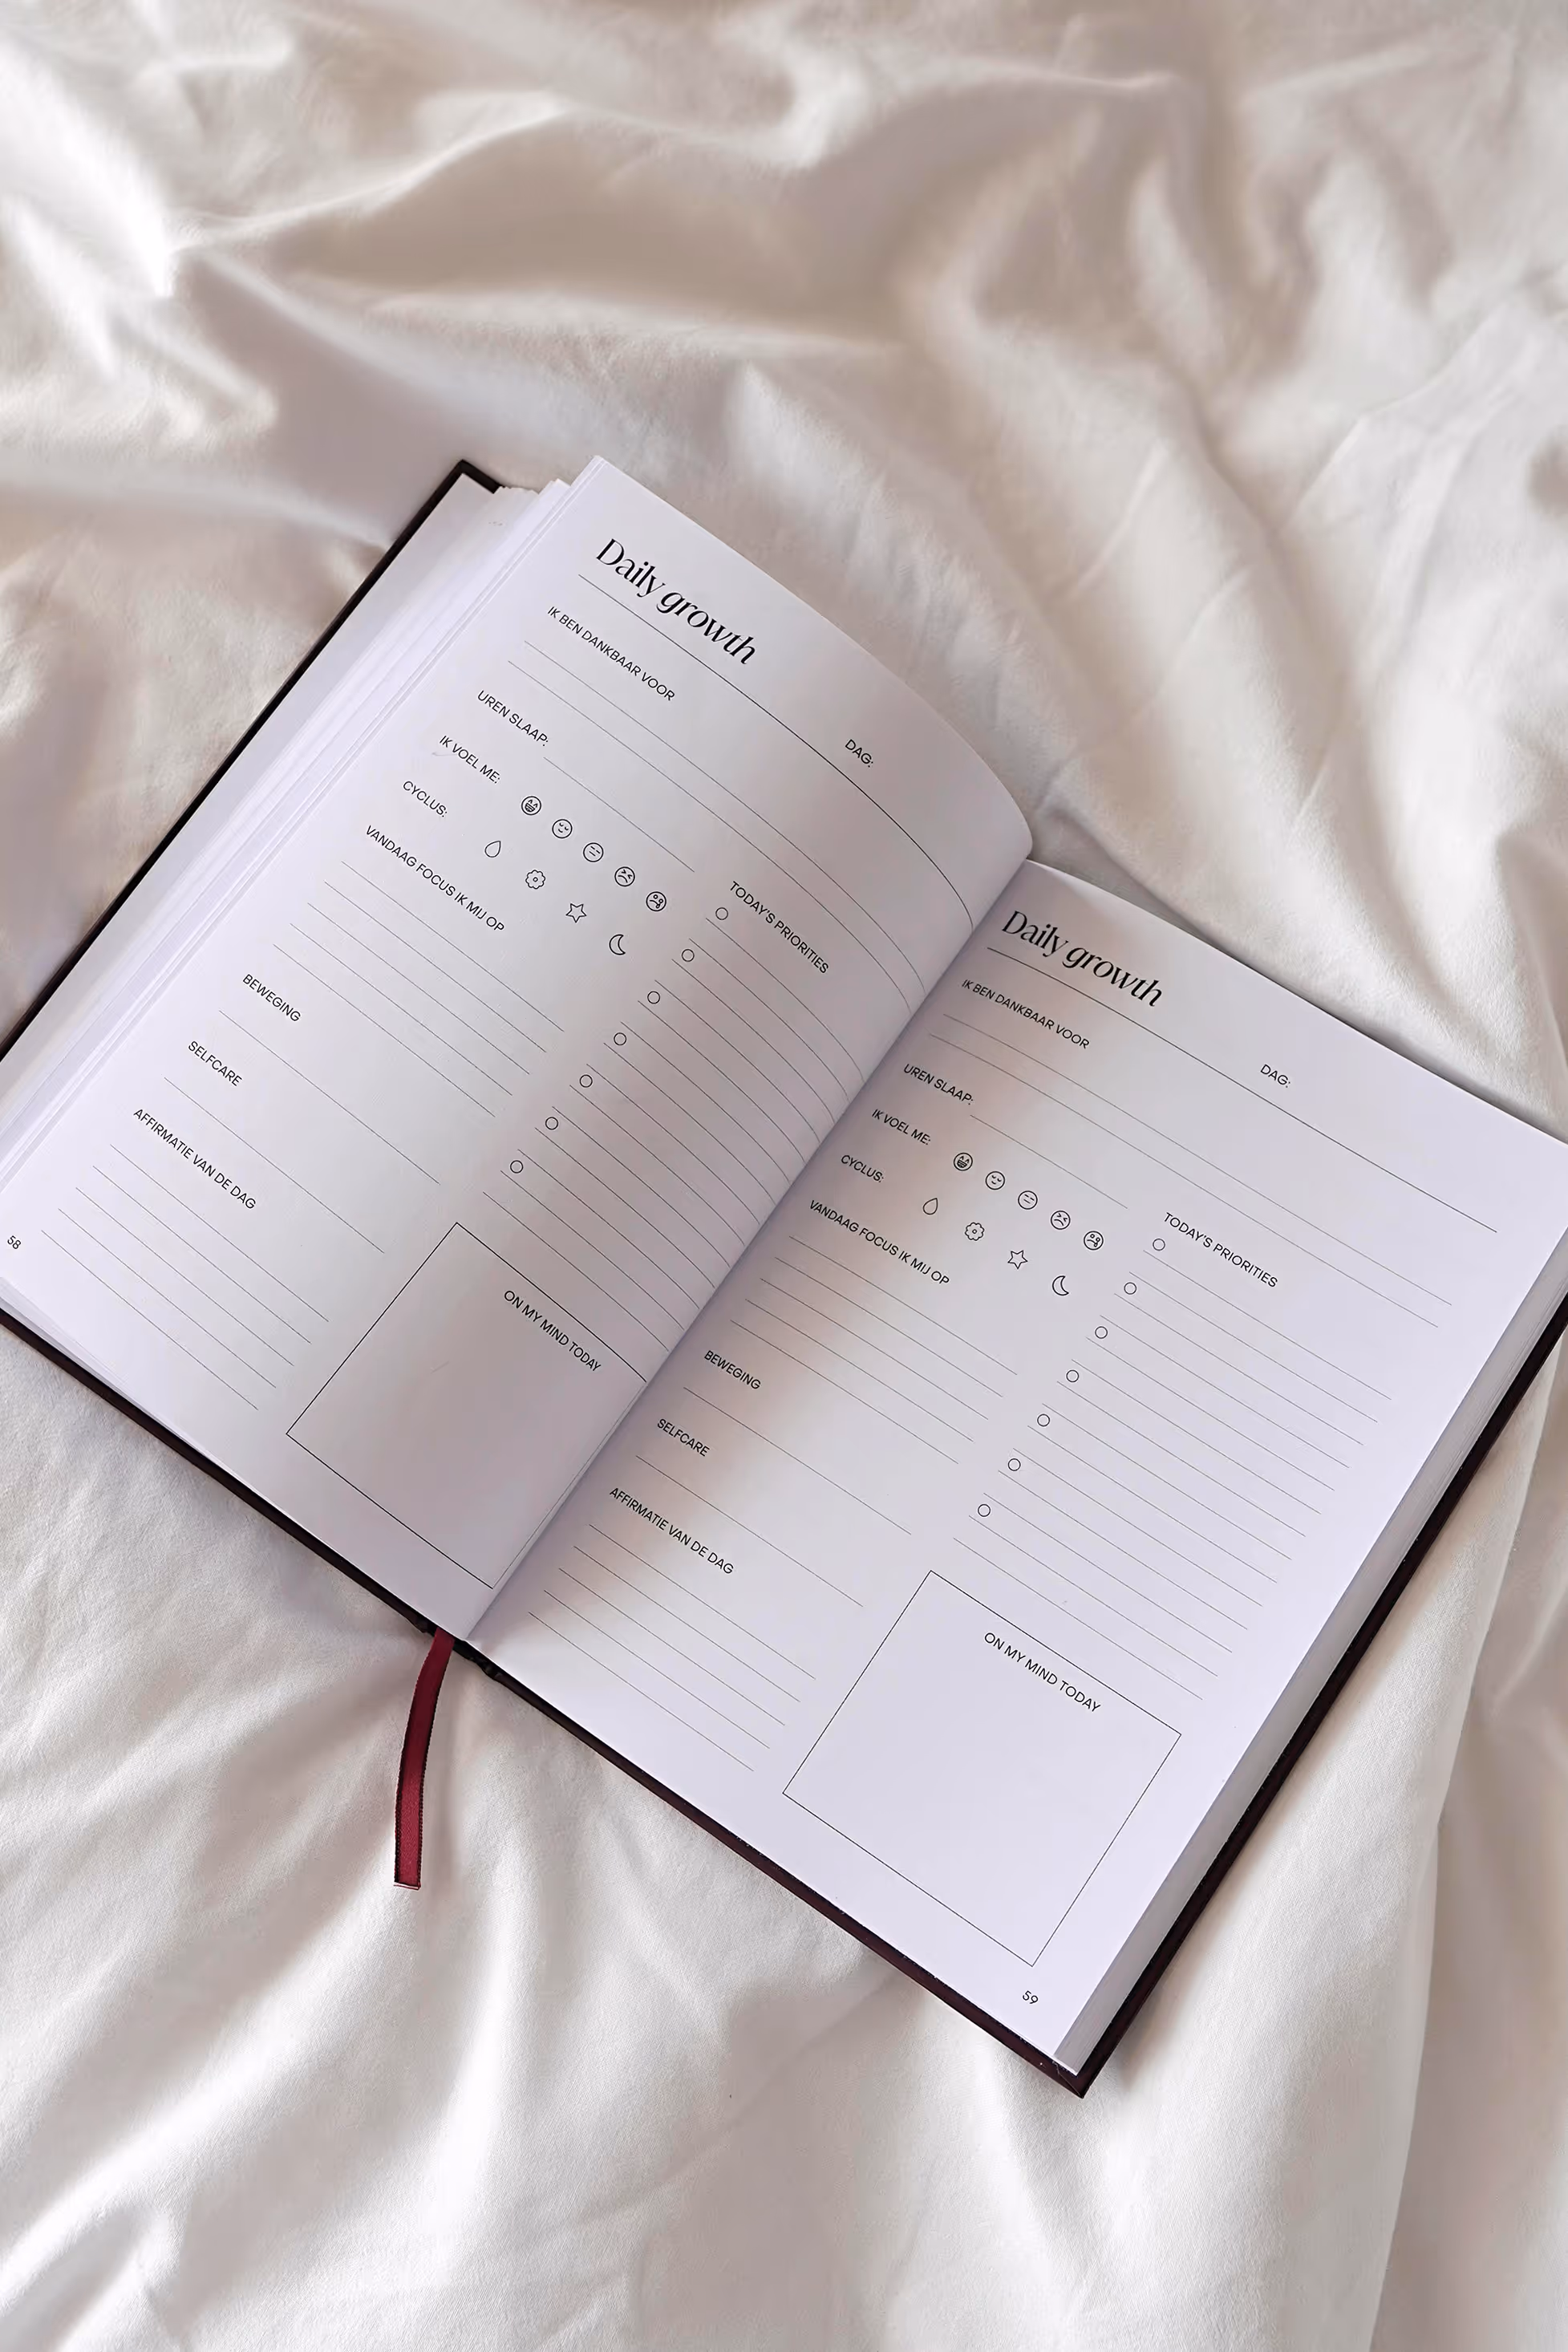 Daily growth
DAG:
IK BEN DANKBAAR VOOR
UREN SLAAP:
IK VOEL ME:
CYCLUS:
VANDAAG FOCUS IK MIJ OP
BEWEGING
SELFCARE
AFFIRMATIE VAN DE DAG
TODAY'S PRIORITIES
ON MY MIND TODAY
58
Daily growth
DAG:
IK BEN DANKBAAR VOOR
UREN SLAAP:
IK VOEL ME:
CYCLUS:
VANDAAG FOCUS IK MIJ OP
BEWEGING
SELFCARE
AFFIRMATIE VAN DE DAG
TODAY'S PRIORITIES
ON MY MIND TODAY
59